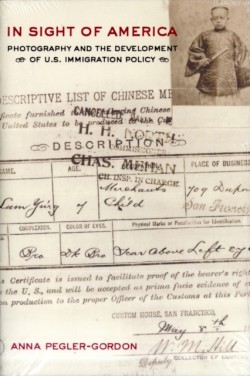 IN SIGHT OF AMERICA
PHOTOGRAPHY AND THE DEVELOPMENT
OF U.S. IMMIGRATION POLICY
DESCRIPTIVE LIST OF CHINESE ME
CANCELLED
United States to be
H. H. NORTH
DESCRIPTION
CHAS. MEHAN
CH. INSP. IN CHARGE
NAME. AGE. PLACE OF BUSINESS
Merchants 709 Dupon
Child San Franci
COMPLEXION. COLOR OF EYES. Physical Marks or Peculiarities for Identification.
Bro Dk Bro Scar Above Left ey
Certificate is issued to facilitate proof of the bearer's right
the U. S., and will be accepted as prima facie evidence of
on production to the proper Officer of the Customs at this Po
CUSTOM HOUSE, SAN FRANCISCO,
May 8th
ANNA PEGLER-GORDON
Deputy COLLECTOR OF